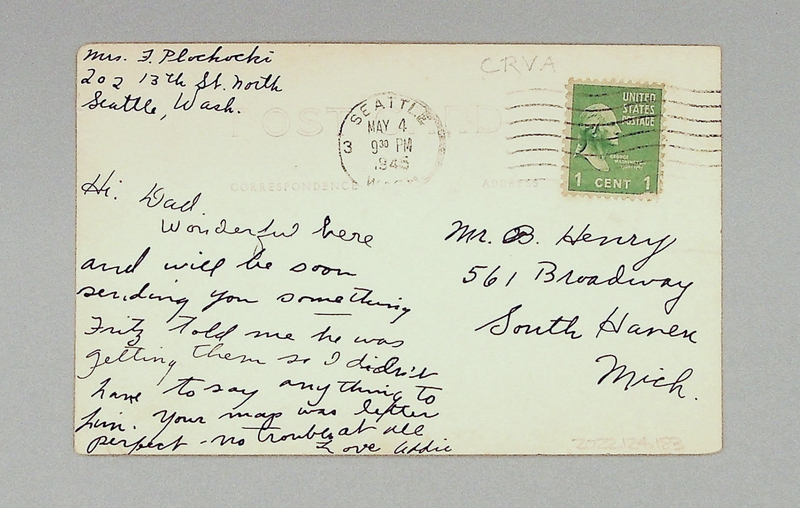 Mrs. F. Plochocki
202 13th St. North
Seattle, Wash.
CRVA
POST CARD
CORRESPONDENCE
ADDRESS
SEATTLE
MAY 4
3 9 30 PM
1945
WASH
UNITED
STATES
POSTAGE
GEORGE
WASHINGTON
1 CENT 1
Hi. Dad.
Wonderful here
and will be soon
sending you something
Fritz told me he was
getting them so I didn't
have to say anything to
him. Your map was letter
perfect - no trouble at all
Love Addie
Mr. B. Henry
561 Broadway
South Haven
Mich.
2022.124.183